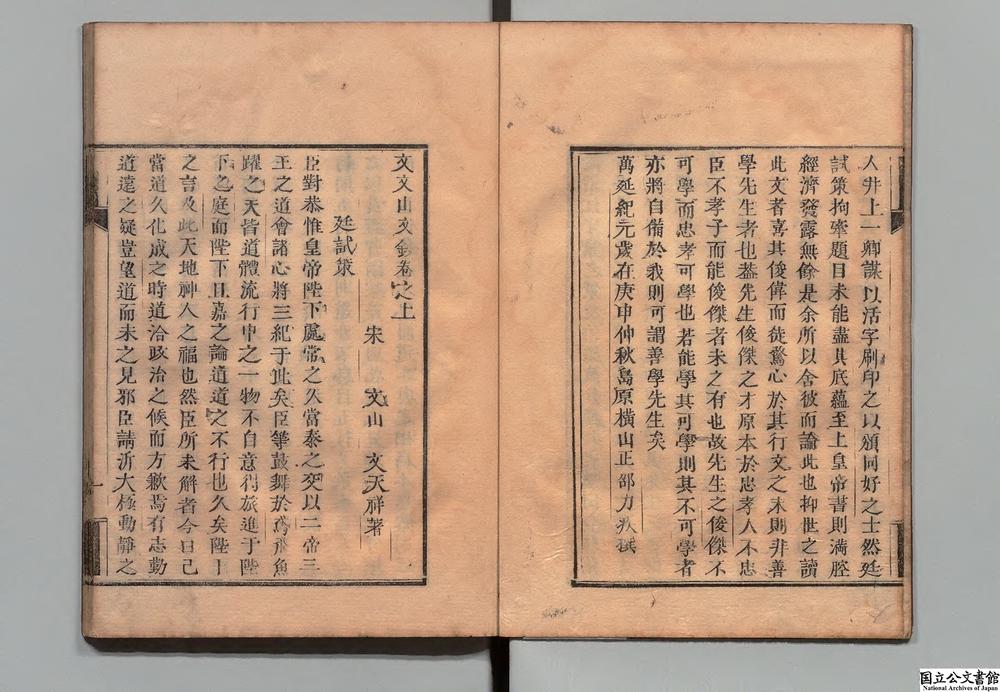 人井上一卿謀以活字刷印之以頒同好之士然廷
試策拘牽題目未能盡其底蘊至上皇帝書則滿腔
經濟發露無餘是余所以舍彼而論此也抑世之讀
此文者喜其俊偉而徒驚心於其行文之末則非善
學先生者也蓋先生俊傑之才原本於忠孝人不忠
臣不孝子而能俊傑者未之有也故先生之俊傑不
可學而忠孝可學也若能學其可學則其不可學者
亦將自備於我則可謂善學先生矣
萬延紀元歲在庚申仲秋島原橫山正邰力疾撰
文文山文鈔卷之上
宋 文山 文天祥著
廷試策
臣對恭惟皇帝陛下處常之久當泰之交以二帝三
王之道會諸心將三紀于此矣臣等鼓舞於鳶飛魚
躍之天皆道體流行中之一物不自意得旅進于陛
下之庭而陛下且嘉之論道道之不行也久矣陛下
之言及此天地神人之福也然臣所未解者今日已
當道久化成之時道洽政治之候而方歉焉有志勤
道遠之疑豈望道而未之見邪臣請泝大極動靜之
一
国立公文書館
National Archives of Japan